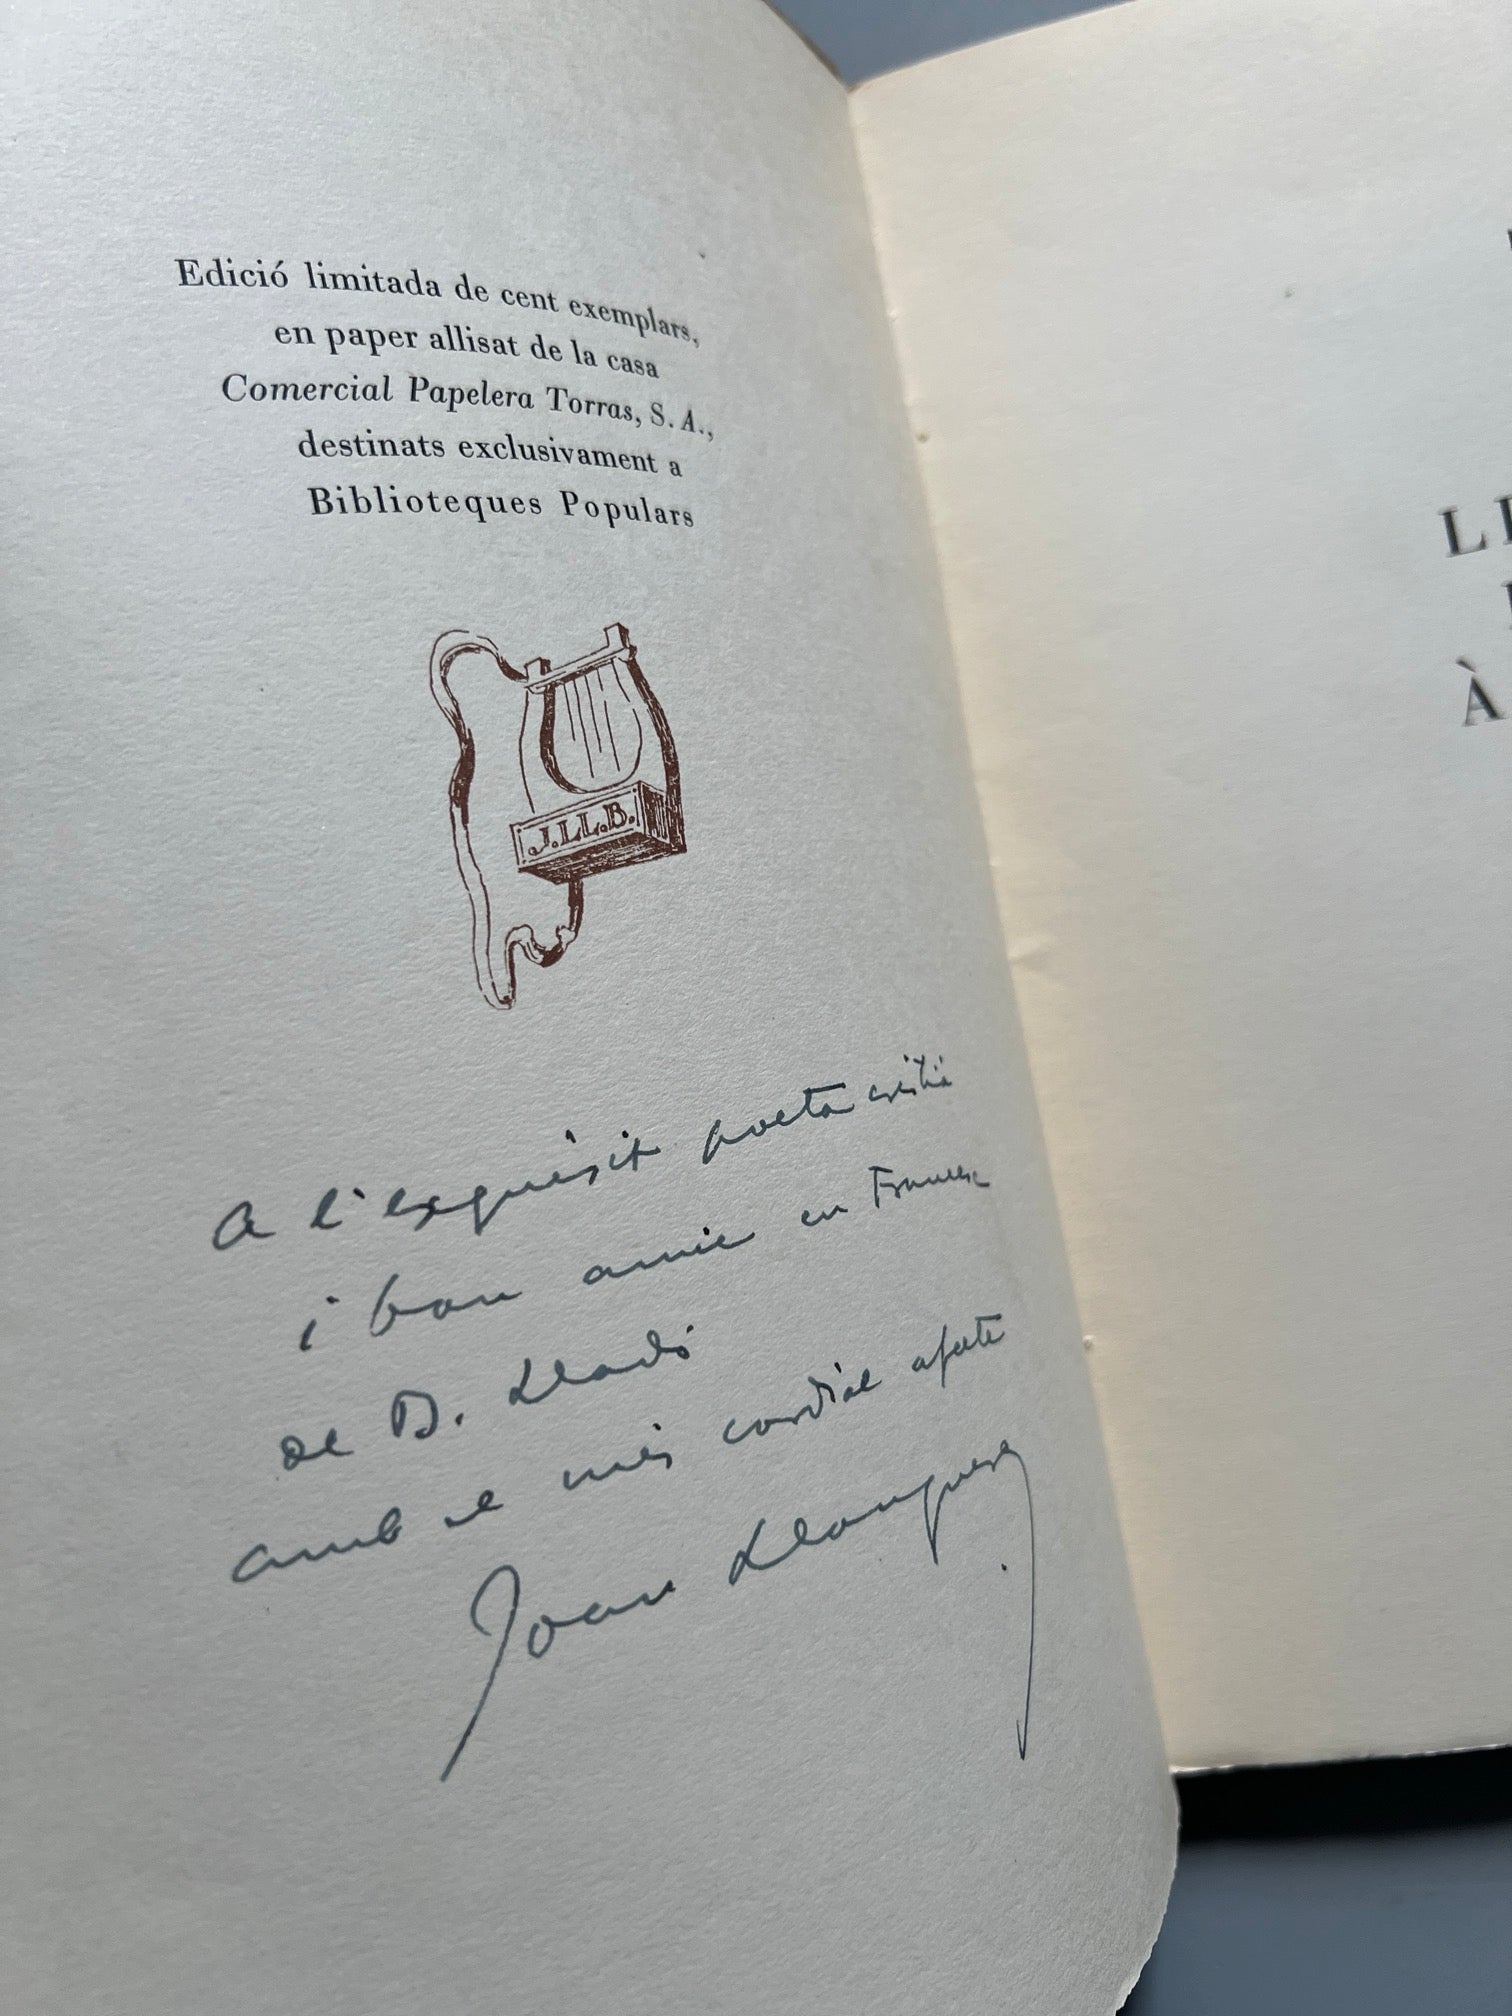 Edició limitada de cent exemplars,
en paper allisat de la casa
Comercial Papelera Torras, S. A.,
destinats exclusivament a
Biblioteques Populars
J.LL.B.
A l'exquisit poeta cristià
i bon amic en Francesc
de B. Lladó
amb el més cordial afecte
Joan Llongueres
À